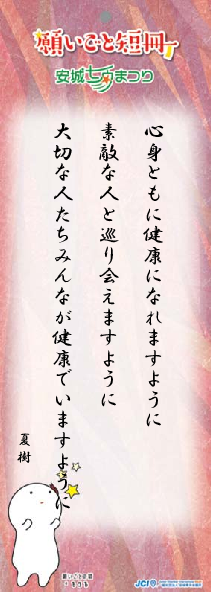 願いごと短冊
安城七夕まつり
心身ともに健康になれますように
素敵な人と巡り会えますように
大切な人たちみんなが健康でいますように
夏樹
願いごと短冊
JCI